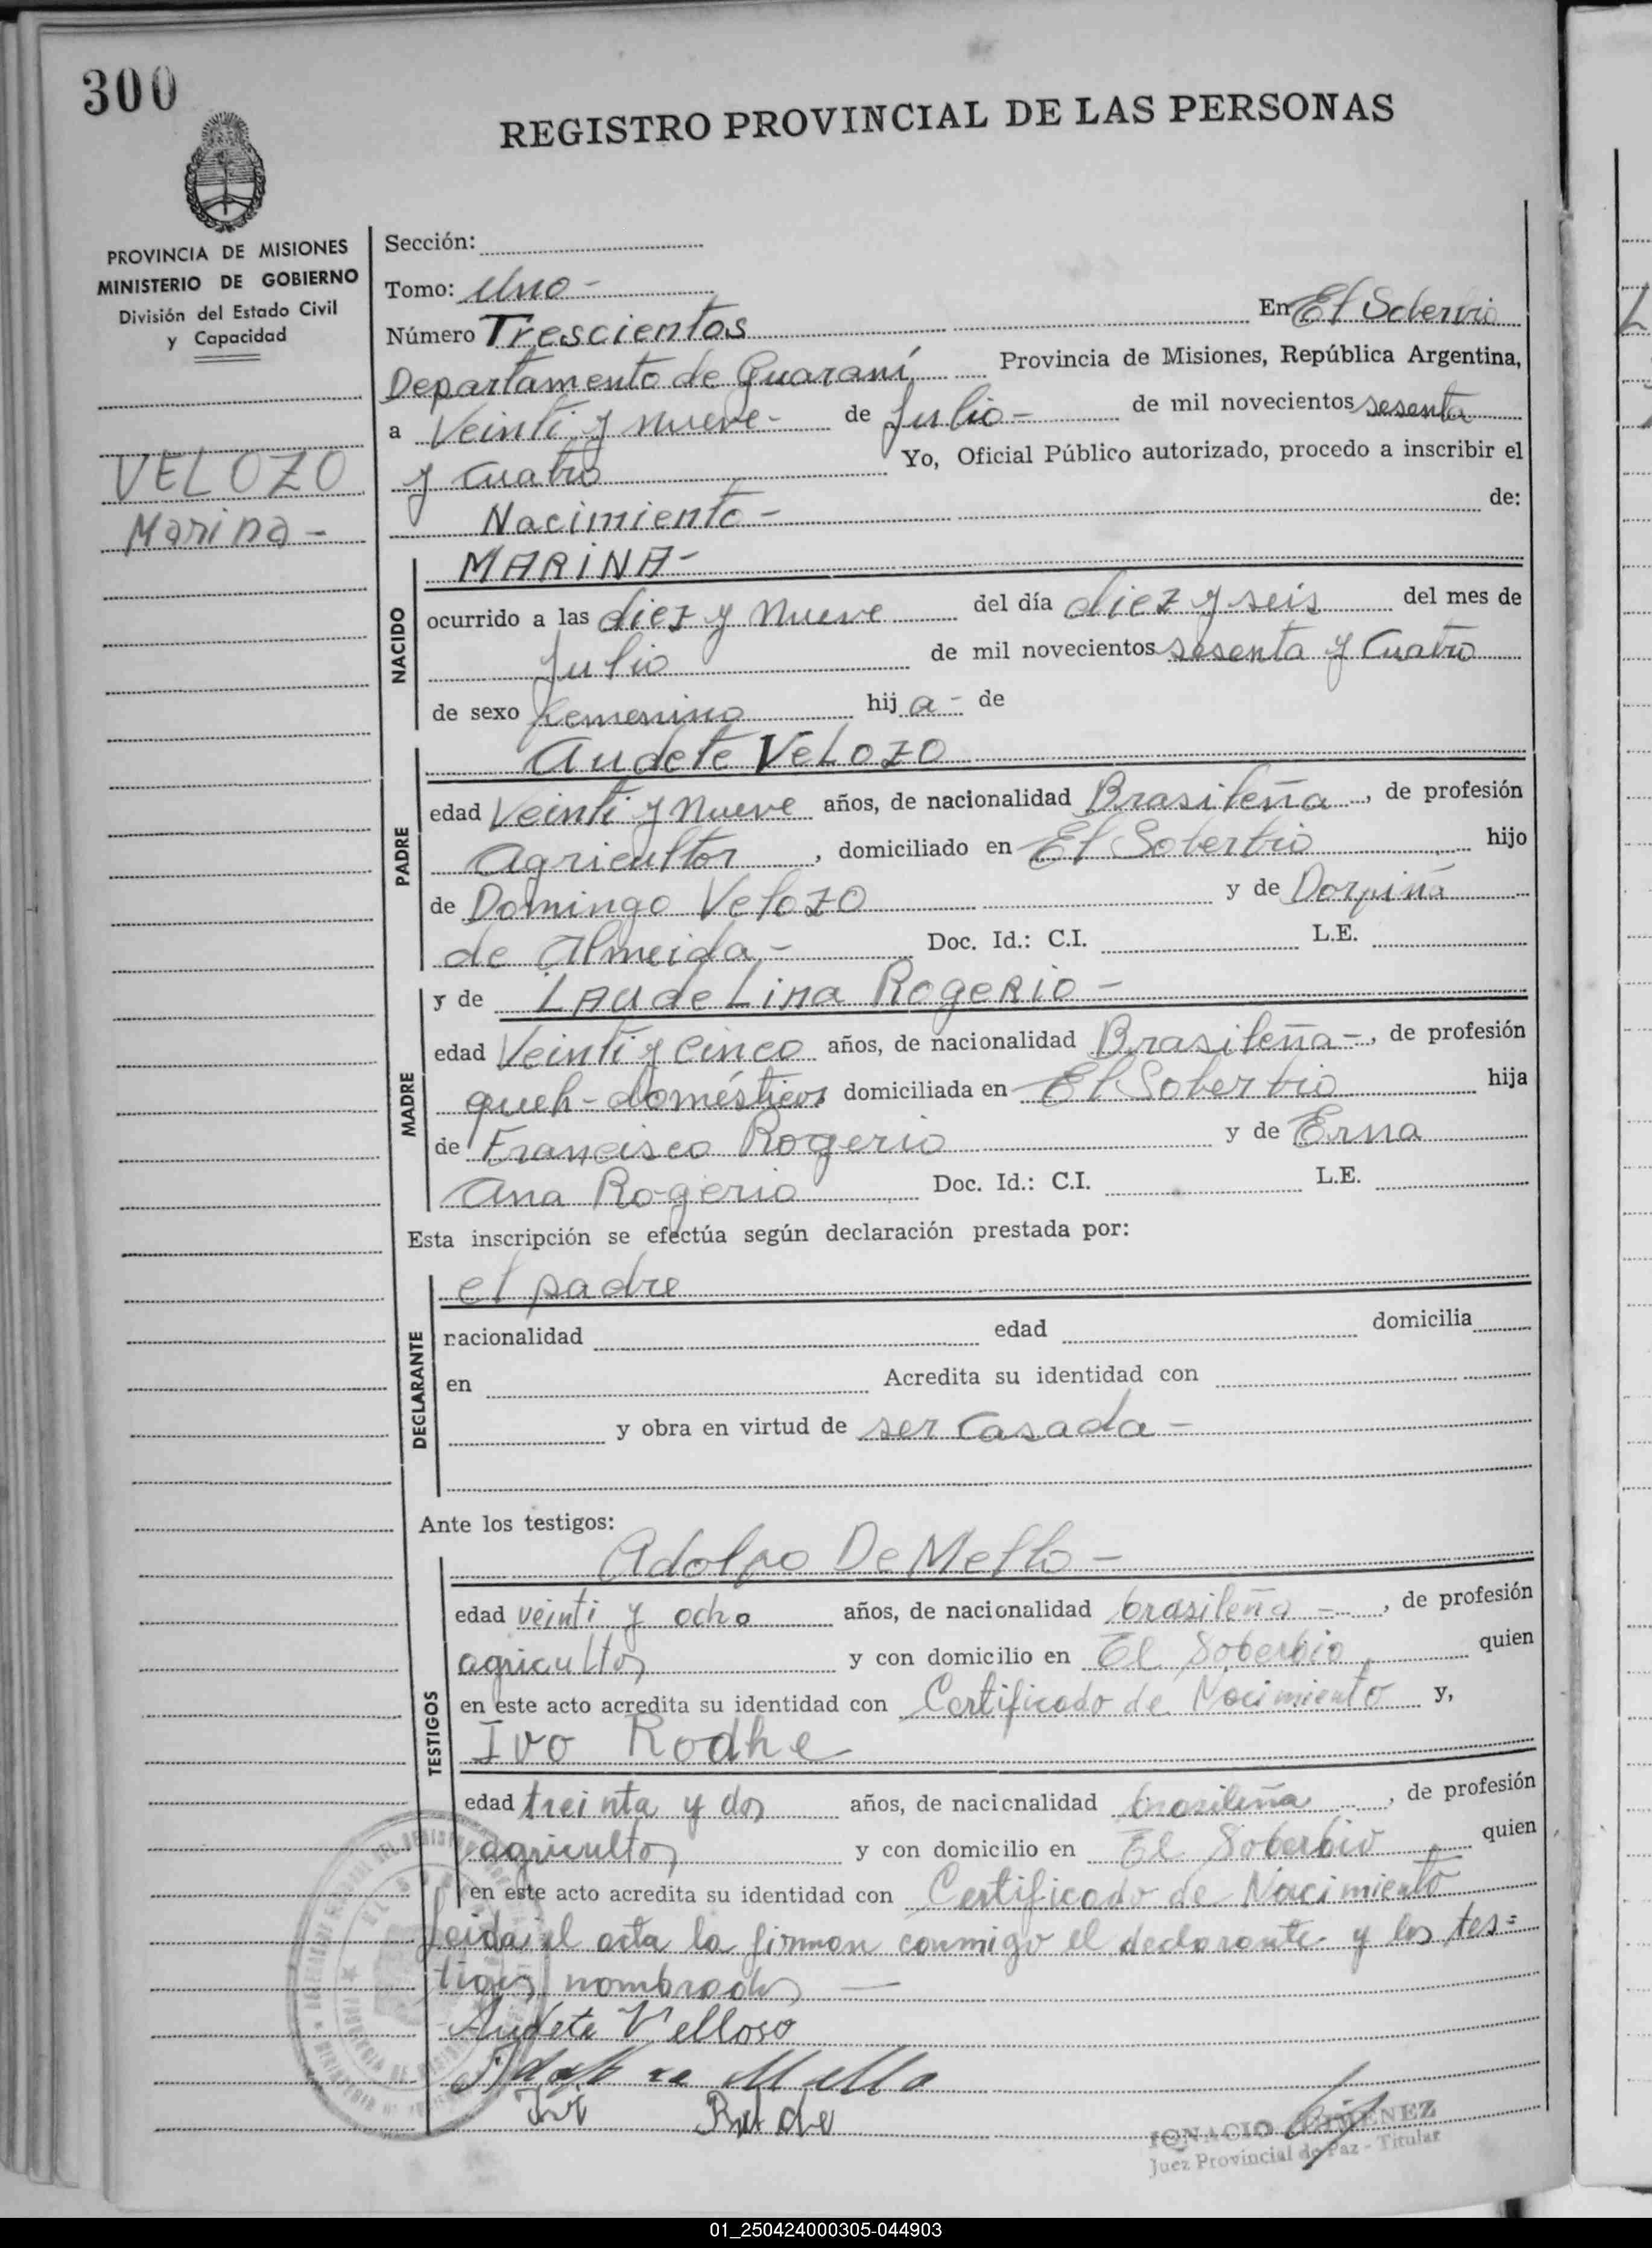 300
REGISTRO PROVINCIAL DE LAS PERSONAS
PROVINCIA DE MISIONES
MINISTERIO DE GOBIERNO
División del Estado Civil
y Capacidad
VELOZO
Marina -
Sección:
Tomo: Uno -
Número Trescientos En El Soberbio
Departamento de Guaraní, Provincia de Misiones, República Argentina,
a Veinti y nueve - de Julio - de mil novecientos sesenta
y cuatro Yo, Oficial Público autorizado, procedo a inscribir el
Nacimiento - de:
NACIDO
MARINA -
ocurrido a las diez y nueve del día diez y seis del mes de
Julio de mil novecientos sesenta y cuatro
de sexo femenino hij a - de
PADRE
Audete VELOZO
edad Veinti y nueve años, de nacionalidad Brasileña, de profesión
Agricultor, domiciliado en El Soberbio hijo
de Domingo Velozo y de
de Almeida - Doc. Id.: C.I. L.E.
MADRE
y de Laudelina Rogerio -
edad Veinti y cinco años, de nacionalidad Brasileña -, de profesión
queh - domésticos domiciliada en El Soberbio hija
de Francisco Rogerio y de Erna
Ana Rogerio Doc. Id.: C.I. L.E.
Esta inscripción se efectúa según declaración prestada por:
DECLARANTE
el padre
nacionalidad edad domicilia
en Acredita su identidad con
y obra en virtud de ser casada -
Ante los testigos:
TESTIGOS
Adolfo De Mello -
edad veinti y ocho años, de nacionalidad brasileña -, de profesión
agricultor y con domicilio en El Soberbio quien
en este acto acredita su identidad con Certificado de Nacimiento y,
Ivo Rodhe
edad treinta y dos años, de nacionalidad brasileña, de profesión
agricultor y con domicilio en El Soberbio quien
en este acto acredita su identidad con Certificado de Nacimiento
Leida el acta la firman conmigo el declarante y los tes=
tigos nombrados —
Audete Velloso
Mello
IGNACIO GIMENEZ
Juez Provincial de Paz - Titular
01_250424000305-044903